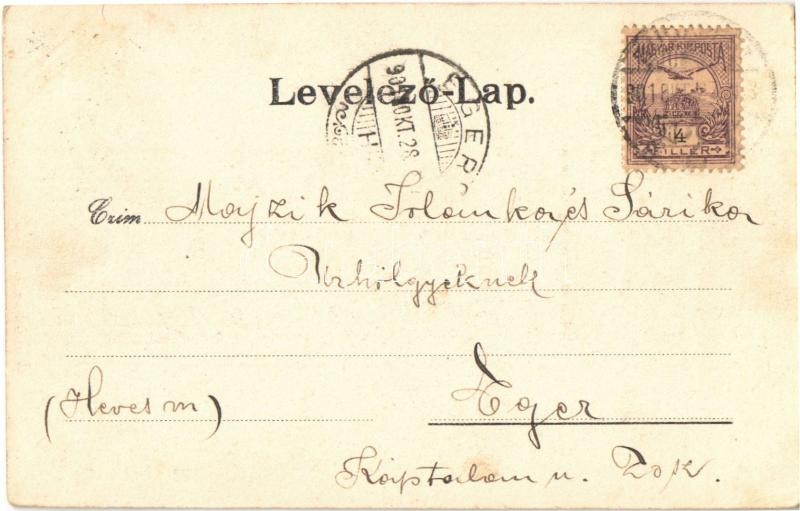 MAGYAR KIR. POSTA
4
FILLÉR
Levelező-Lap.
EGER
903 OKT. 28
Czim Majzik Ilonka és Sárika
Úrhölgyeknek
(Heves m)
Eger
Káptalan u.